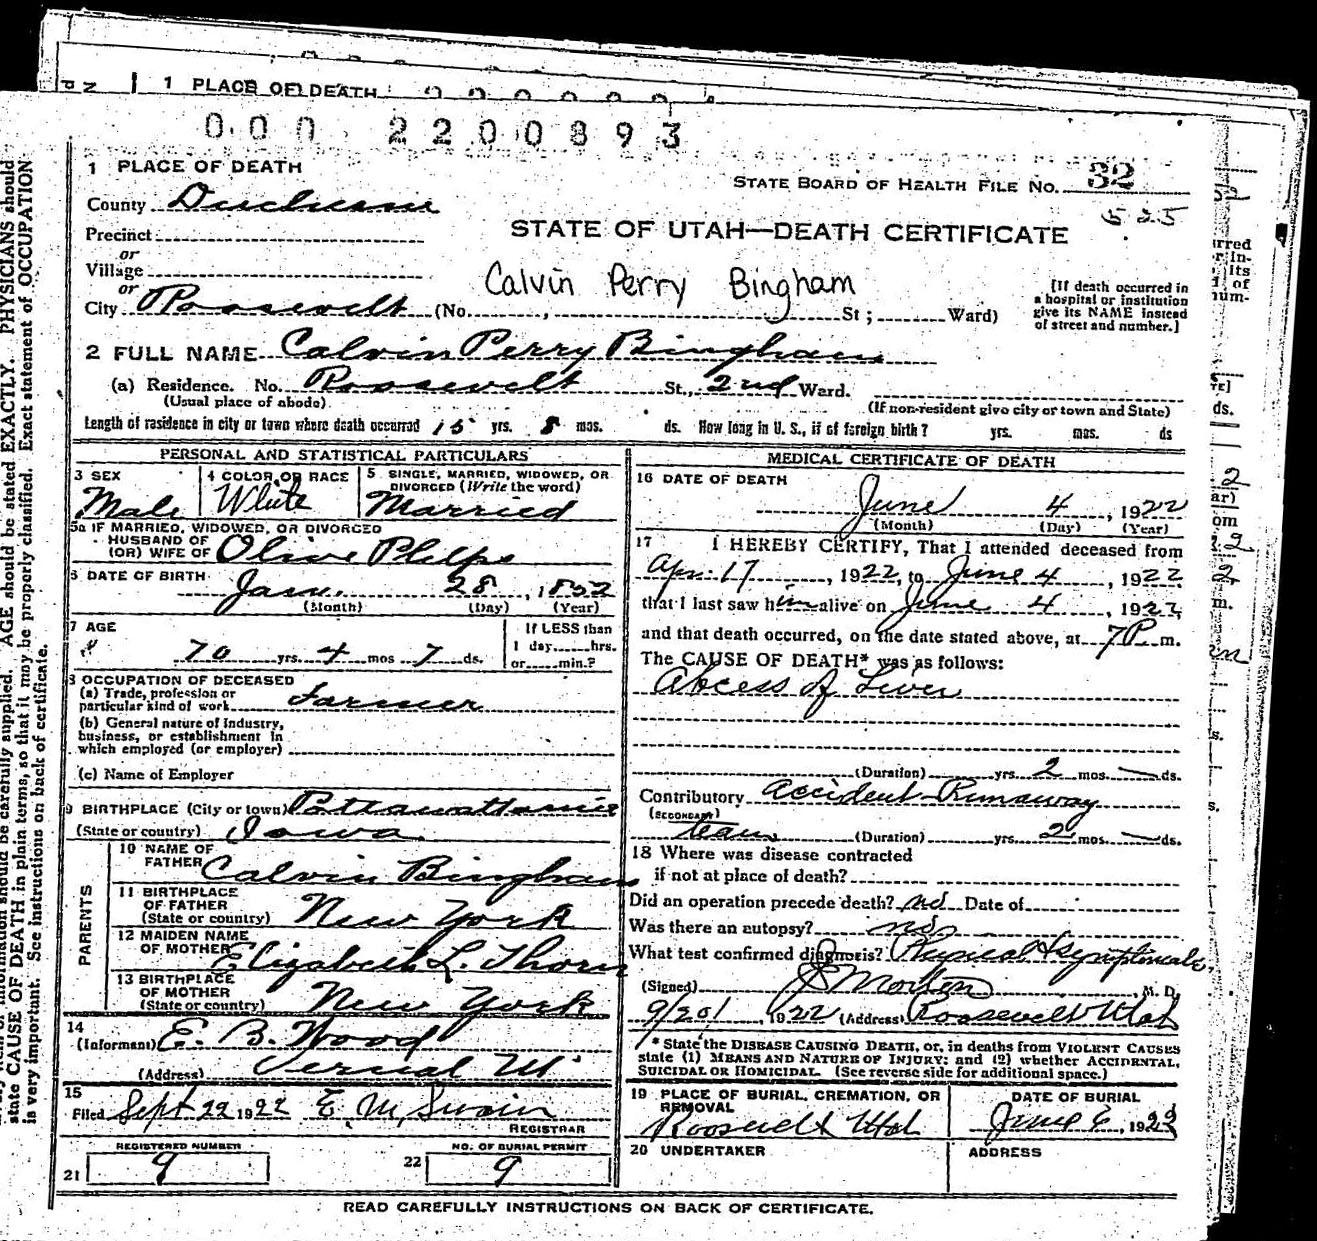 1 PLACE OF DEATH
000 2200893
1 PLACE OF DEATH
STATE BOARD OF HEALTH FILE NO. 32
County Duchesne
525
Precinct
STATE OF UTAH—DEATH CERTIFICATE
or
Village
or
Calvin Perry Bingham
[If death occurred in
a hospital or institution
give its NAME instead
of street and number.]
City Roosevelt (No. , St ; Ward)
2 FULL NAME Calvin Perry Bingham
(a) Residence. No. Roosevelt St., 2nd Ward.
(Usual place of abode)
(If non-resident give city or town and State)
Length of residence in city or town where death occurred 15 yrs. 8 mos. ds. How long in U. S., if of foreign birth? yrs. mos. ds
PERSONAL AND STATISTICAL PARTICULARS
3 SEX
Male
4 COLOR OR RACE
White
5 SINGLE, MARRIED, WIDOWED, OR
DIVORCED (Write the word)
Married
5a IF MARRIED, WIDOWED, OR DIVORCED
HUSBAND OF
(OR) WIFE OF Olive Phelps
6 DATE OF BIRTH
Jan. 28, 1852
(Month) (Day) (Year)
7 AGE
70 yrs. 4 mos 7 ds.
If LESS than
1 day hrs.
or min.?
8 OCCUPATION OF DECEASED
(a) Trade, profession or
particular kind of work Farmer
(b) General nature of Industry,
business, or establishment in
which employed (or employer)
(c) Name of Employer
9 BIRTHPLACE (City or town) Pottawattamie
(State or country) Iowa
PARENTS
10 NAME OF
FATHER Calvin Bingham
11 BIRTHPLACE
OF FATHER
(State or country) New York
12 MAIDEN NAME
OF MOTHER Elizabeth L. Thorn
13 BIRTHPLACE
OF MOTHER
(State or country) New York
14
(Informant) E. B. Wood
(Address) Vernal Ut
15
Filed Sept 22 1922 E M Swain
REGISTRAR
REGISTERED NUMBER
21 9
NO. OF BURIAL PERMIT
22 9
MEDICAL CERTIFICATE OF DEATH
16 DATE OF DEATH
June 4, 1922
(Month) (Day) (Year)
17 I HEREBY CERTIFY, That I attended deceased from
Apr. 17, 1922, to June 4, 1922
that I last saw him alive on June 4, 1922,
and that death occurred, on the date stated above, at 7 P m.
The CAUSE OF DEATH* was as follows:
Abcess of Liver
(Duration) yrs. 2 mos. ds.
Contributory Accident-Runaway
(SECONDARY)
team (Duration) yrs. 2 mos. ds.
18 Where was disease contracted
if not at place of death?
Did an operation precede death? no Date of
Was there an autopsy? no
What test confirmed diagnosis? Physical & symptimals
(Signed) J Morton M. D.
9/20, 1922 (Address) Roosevelt Utah
* State the DISEASE CAUSING DEATH, or, in deaths from VIOLENT CAUSES
state (1) MEANS AND NATURE OF INJURY; and (2) whether ACCIDENTAL,
SUICIDAL OR HOMICIDAL. (See reverse side for additional space.)
19 PLACE OF BURIAL, CREMATION, OR
REMOVAL
Roosevelt Utah
DATE OF BURIAL
June 6, 1922
20 UNDERTAKER
ADDRESS
READ CAREFULLY INSTRUCTIONS ON BACK OF CERTIFICATE.
information should be carefully supplied. AGE should be stated EXACTLY. PHYSICIANS should
state CAUSE OF DEATH in plain terms, so that it may be properly classified. Exact statement of OCCUPATION
is very important. See instructions on back of certificate.